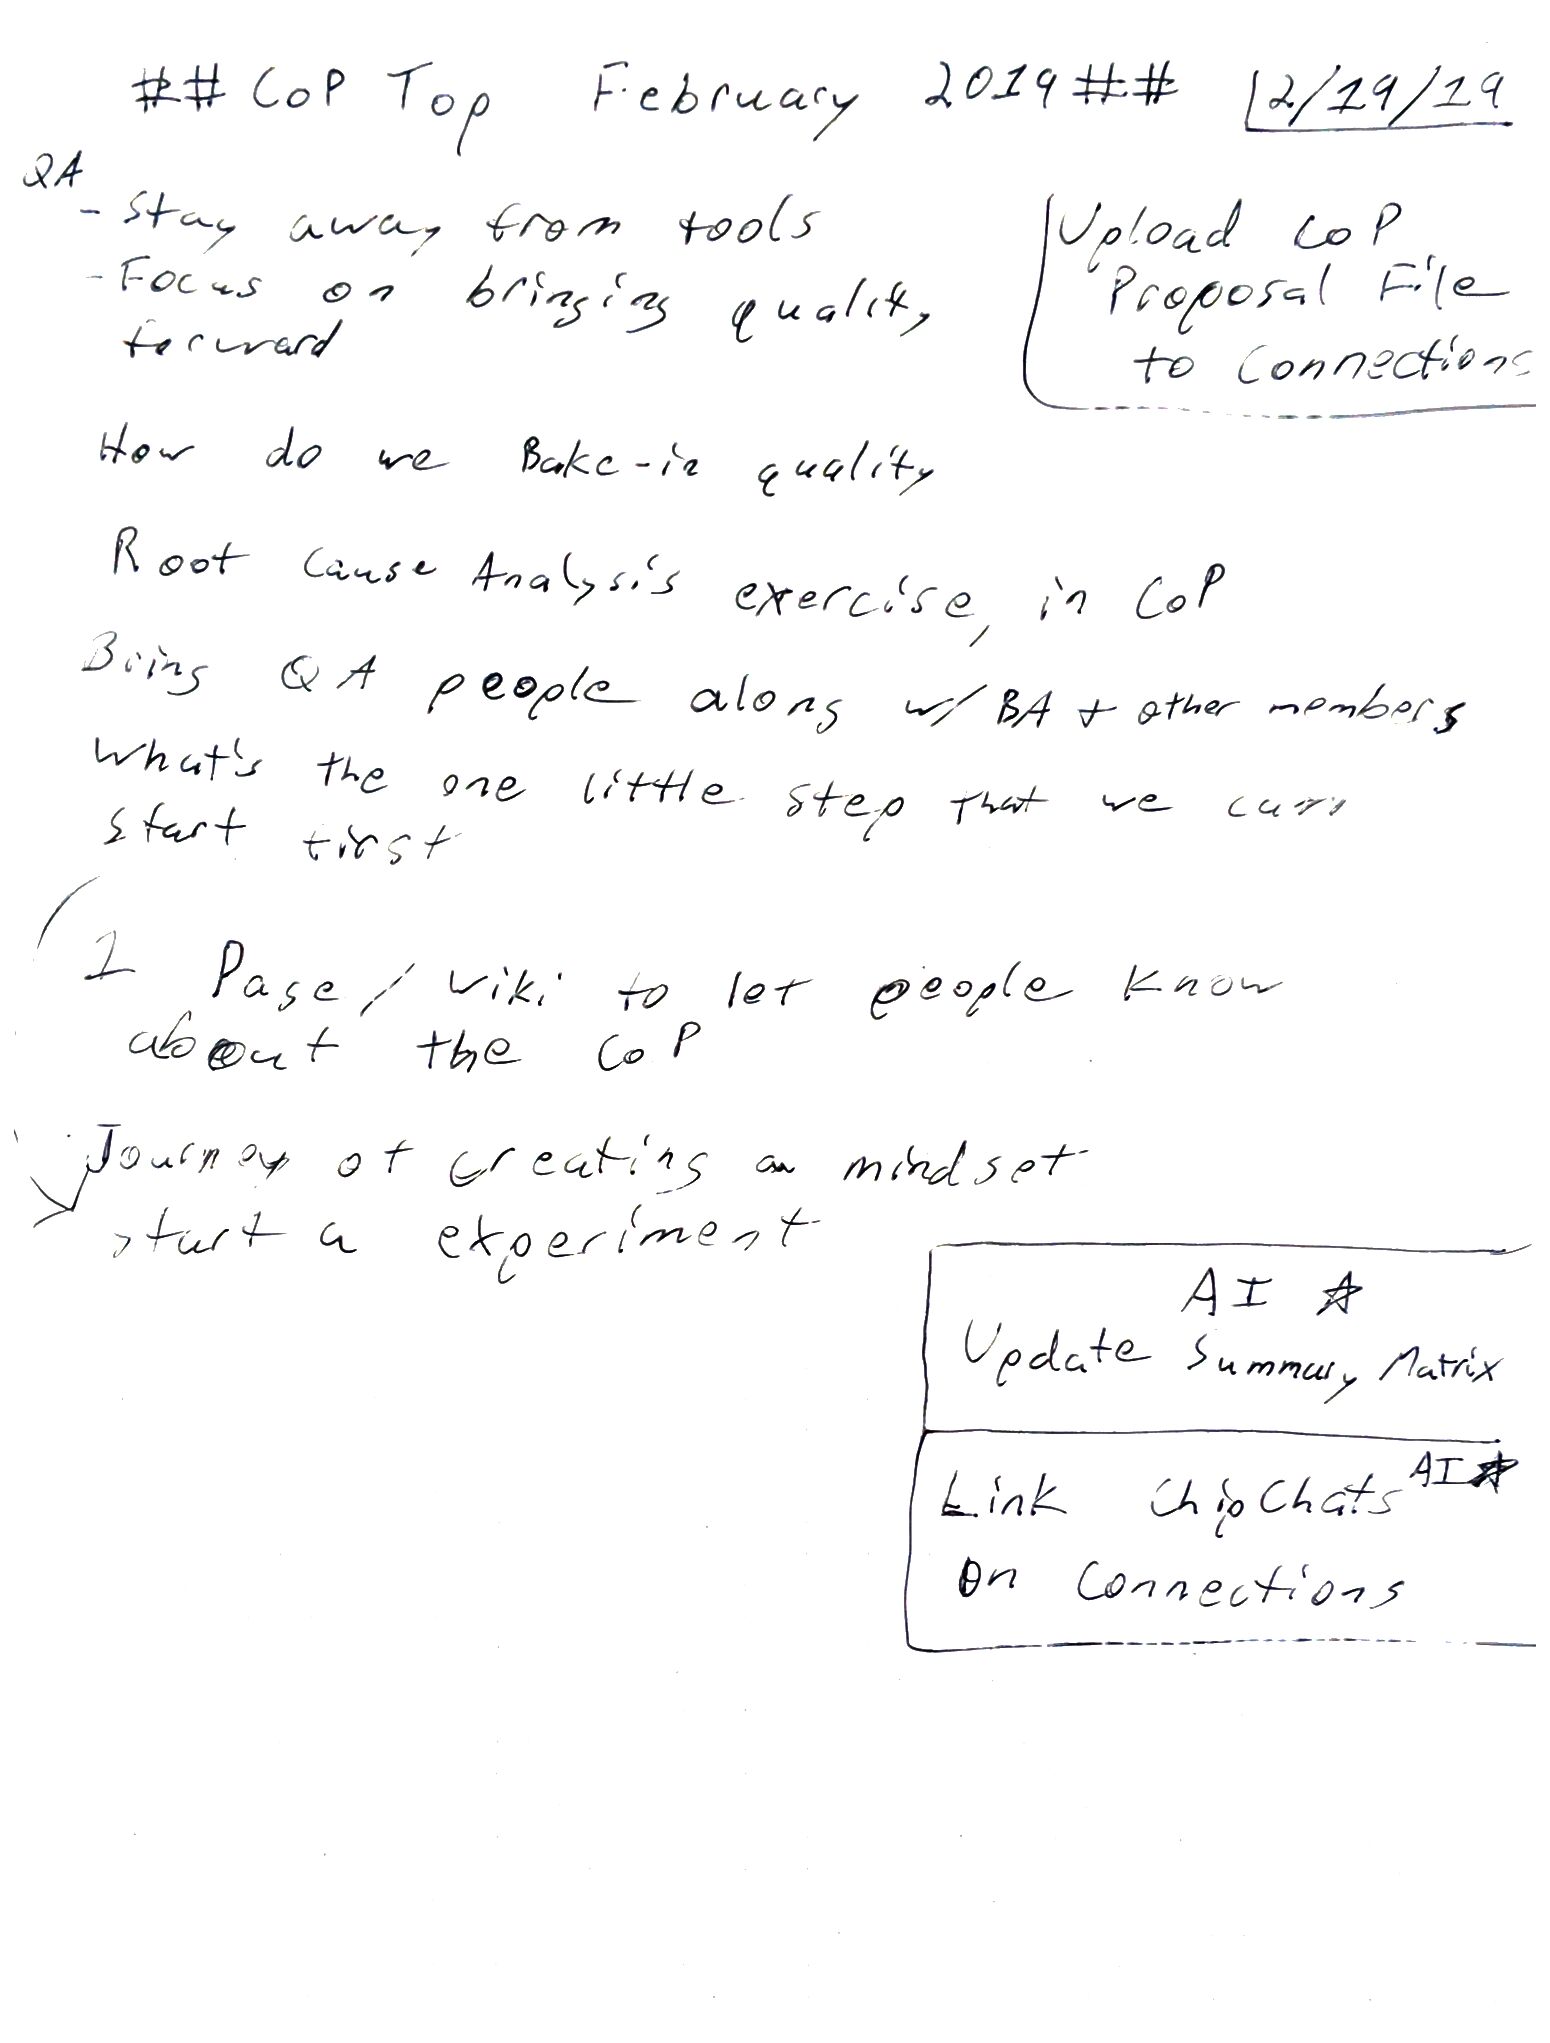 ##CoP Top February 2019## 2/19/19
QA
- Stay away from tools
- Focus on bringing quality
forward
Upload CoP
Proposal File
to Connections
How do we Bake-in quality
Root Cause Analysis exercise, in CoP
Bring QA people along w/ BA + other members
What's the one little step that we can
start first
1 Page / Wiki to let people know
about the CoP
Journey of creating a mindset
start a experiment
AI ☆
Update Summary Matrix
Link ChipChats AI ☆
on Connections